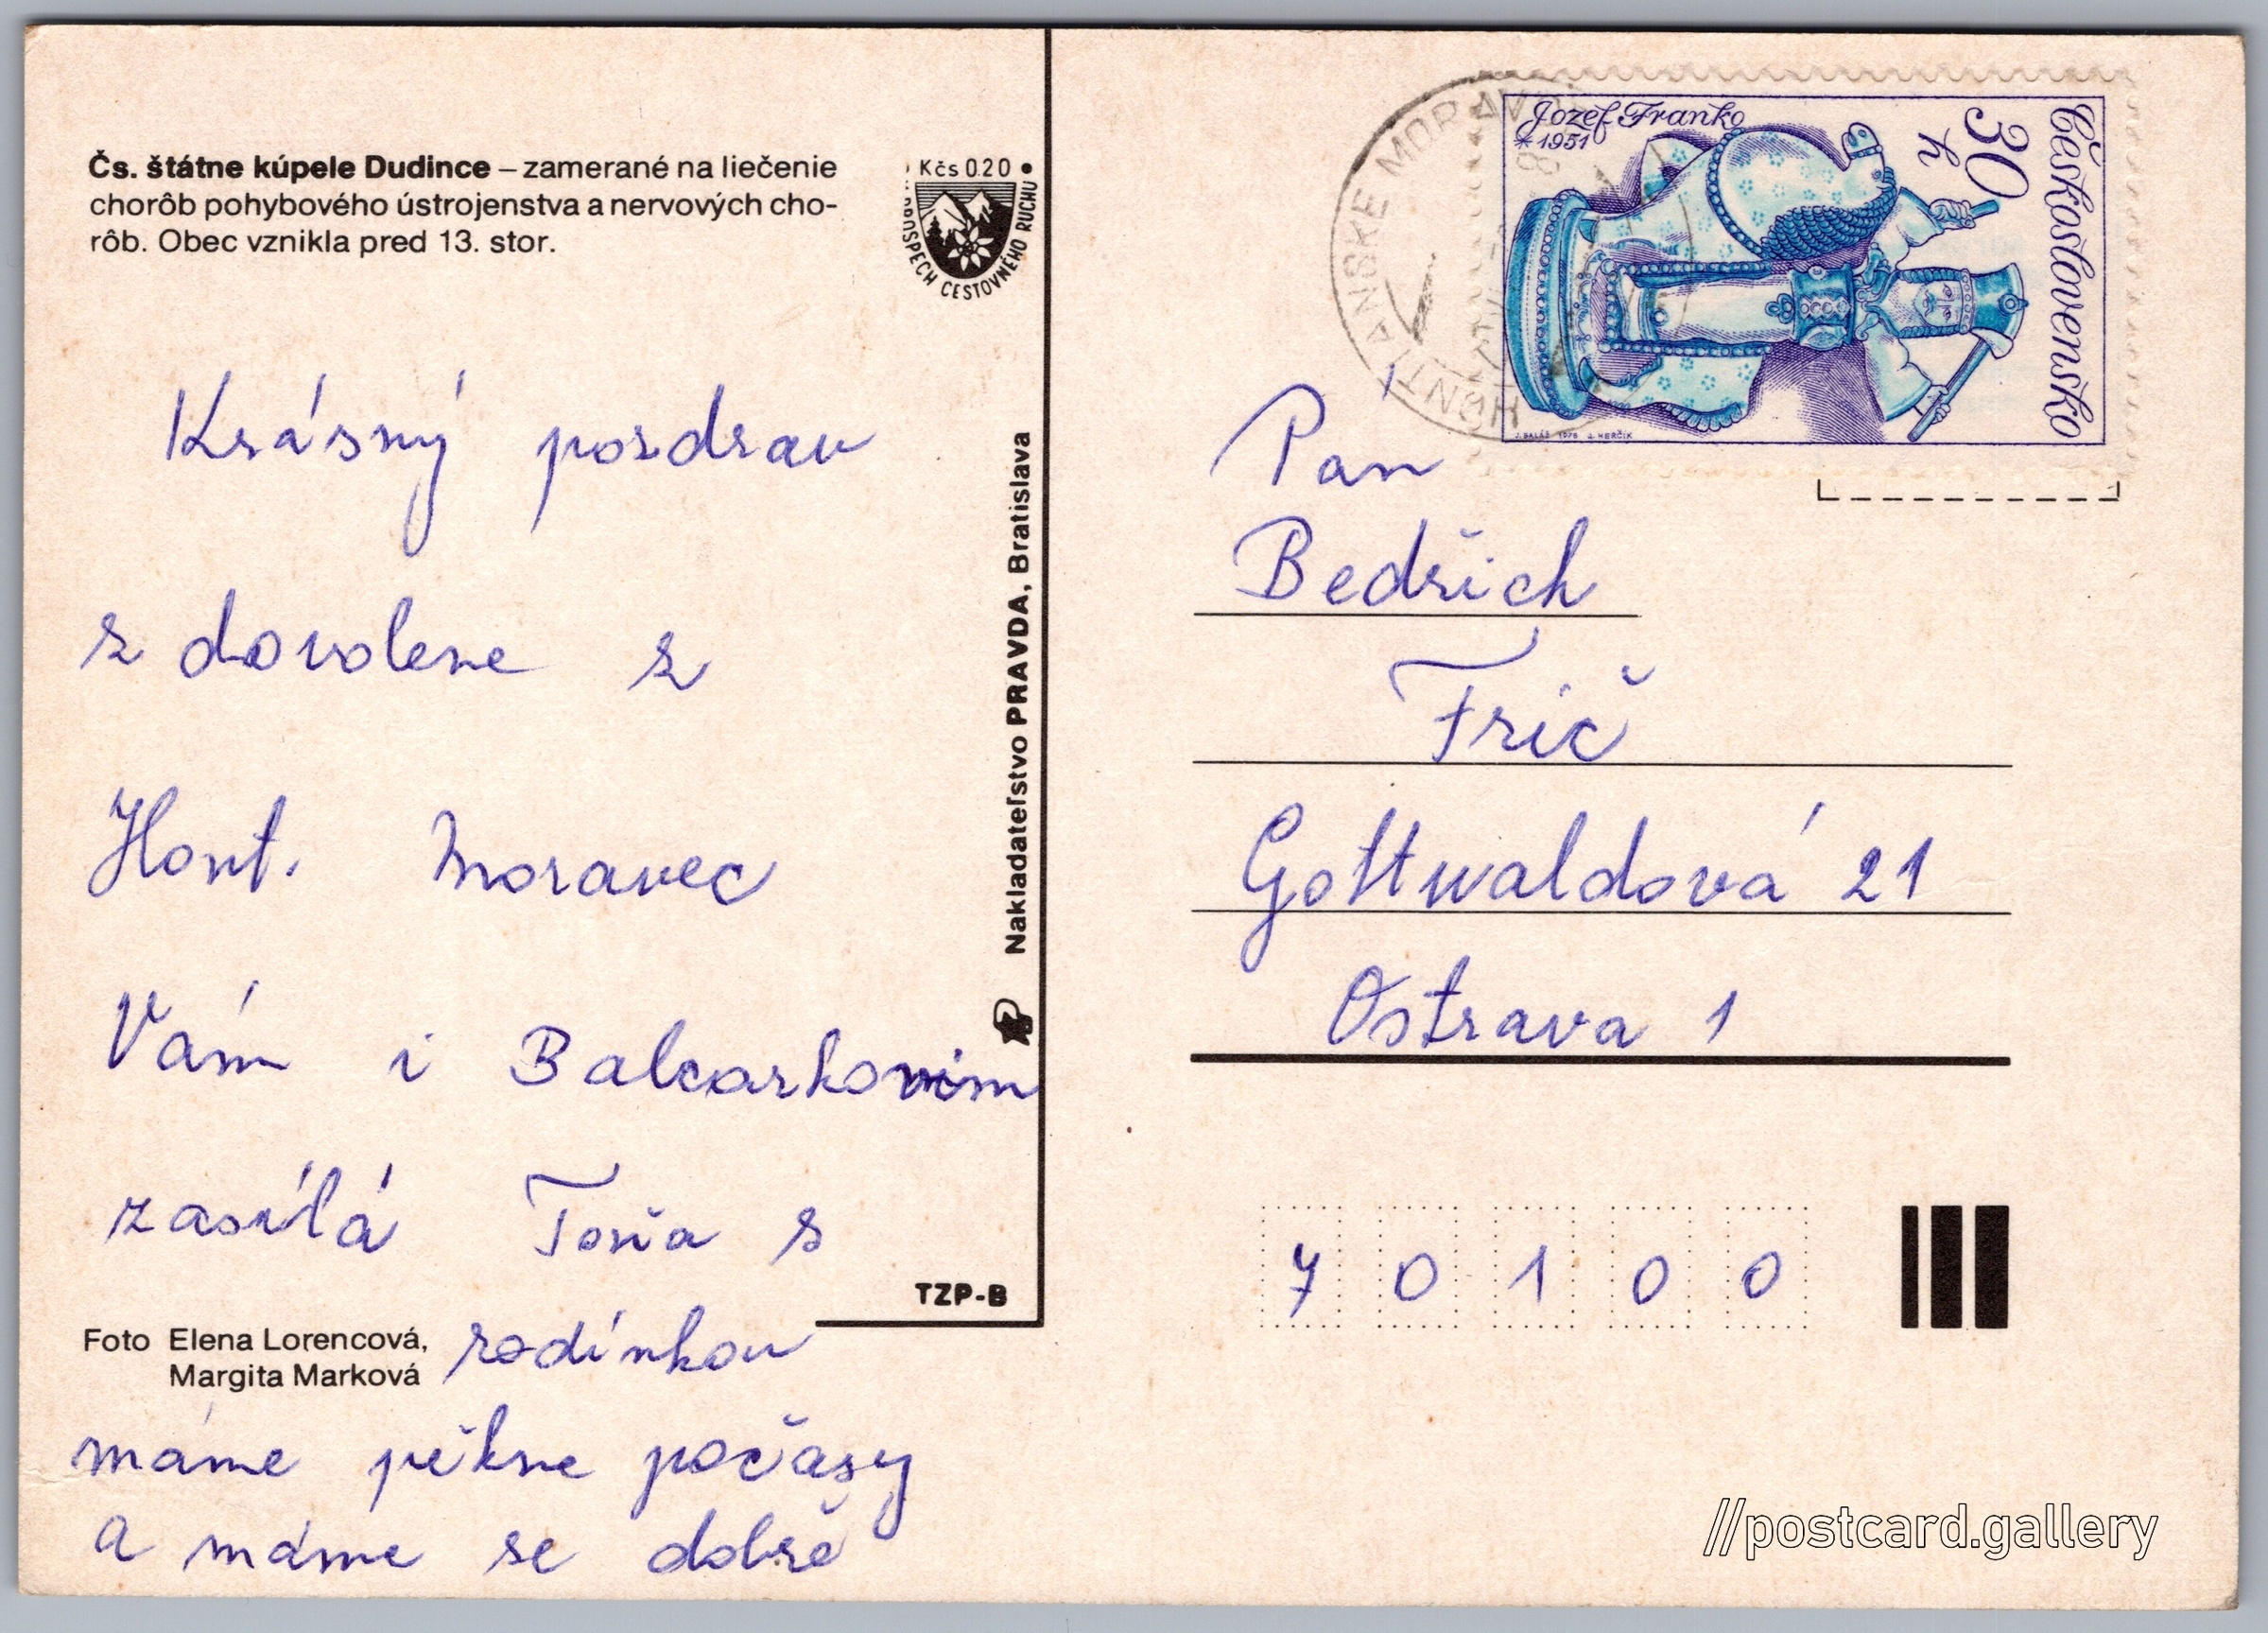 Čs. štátne kúpele Dudince – zamerané na liečenie
chorôb pohybového ústrojenstva a nervových cho-
rôb. Obec vznikla pred 13. stor.
Kčs 0.20 •
PROSPECH CESTOVNÉHO RUCHU
Krásný pozdrav
z dovolene z
Hont. Moravec
Vám i Balcarkovim
zasílá Toňa s
rodínkou
máme pěkne počasy
a máme se dobře
Nakladateľstvo PRAVDA, Bratislava
TZP-B
Foto Elena Lorencová,
Margita Marková
HONTIANSKE MORAV
Jozef Franko
* 1951
30
h
Československo
J. BALÁŽ 1978 J. HERČÍK
Pan
Bedřich
Frič
Gottwaldová 21
Ostrava 1
70100
//postcard.gallery